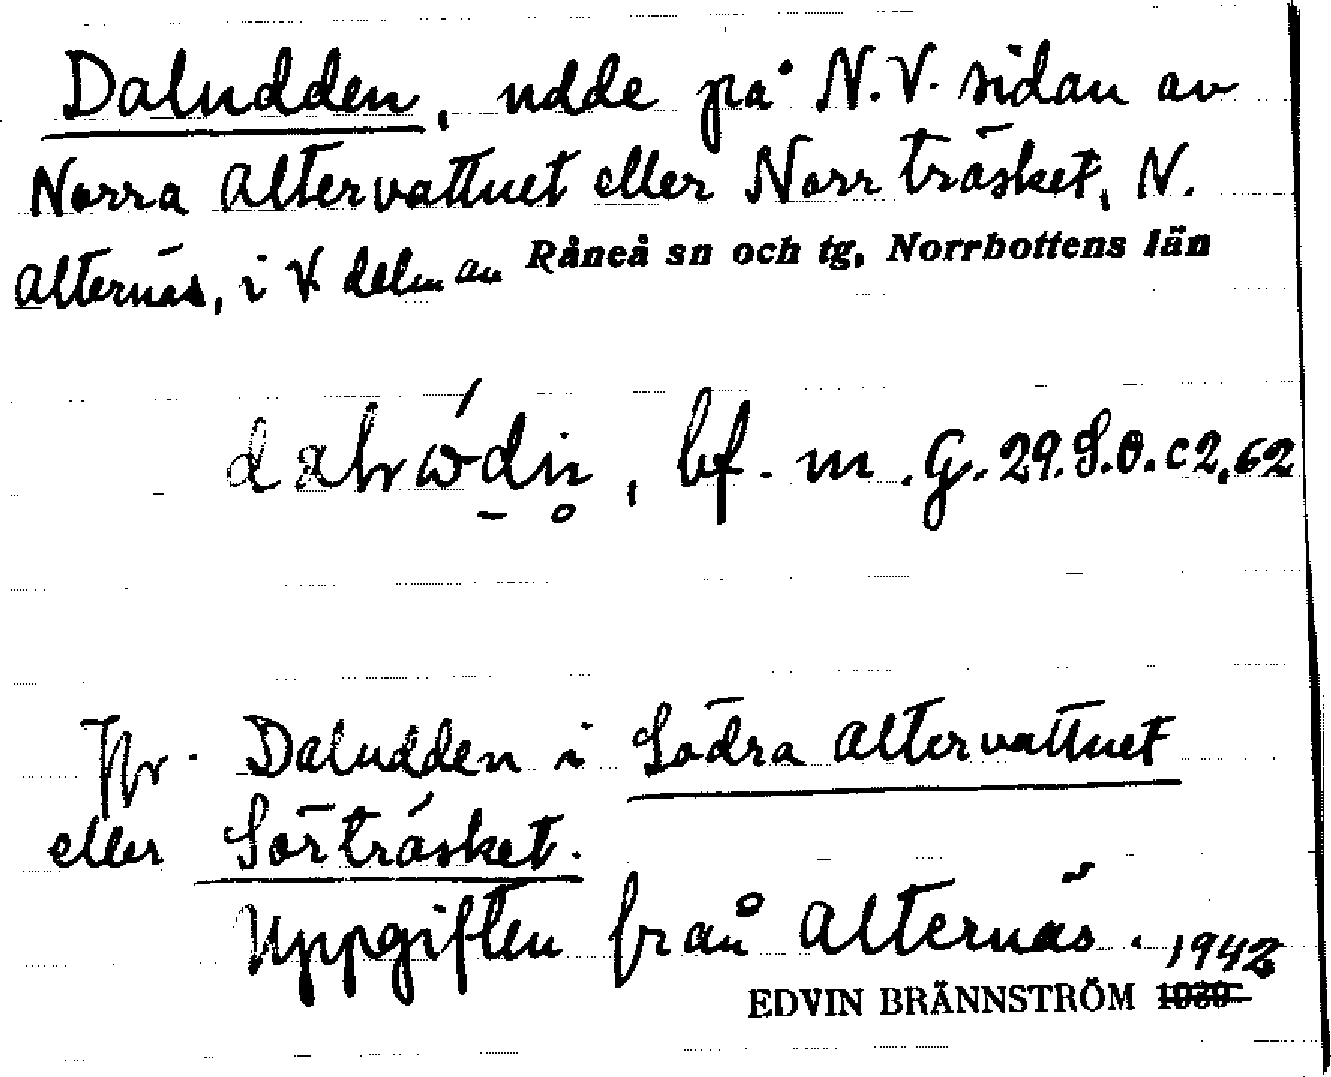 Daludden, udde på N.V. sidan av
Norra Altervattnet eller Norrträsket, N.
Alternäs, i V delen av Råneå sn och tg, Norrbottens län
bf. m. G. 29. S. O. c 2.62
Jfr. Daludden i Södra Altervattnet
eller Sörträsket.
Uppgiften från Alternäs. 1942
EDVIN BRÄNNSTRÖM 1930